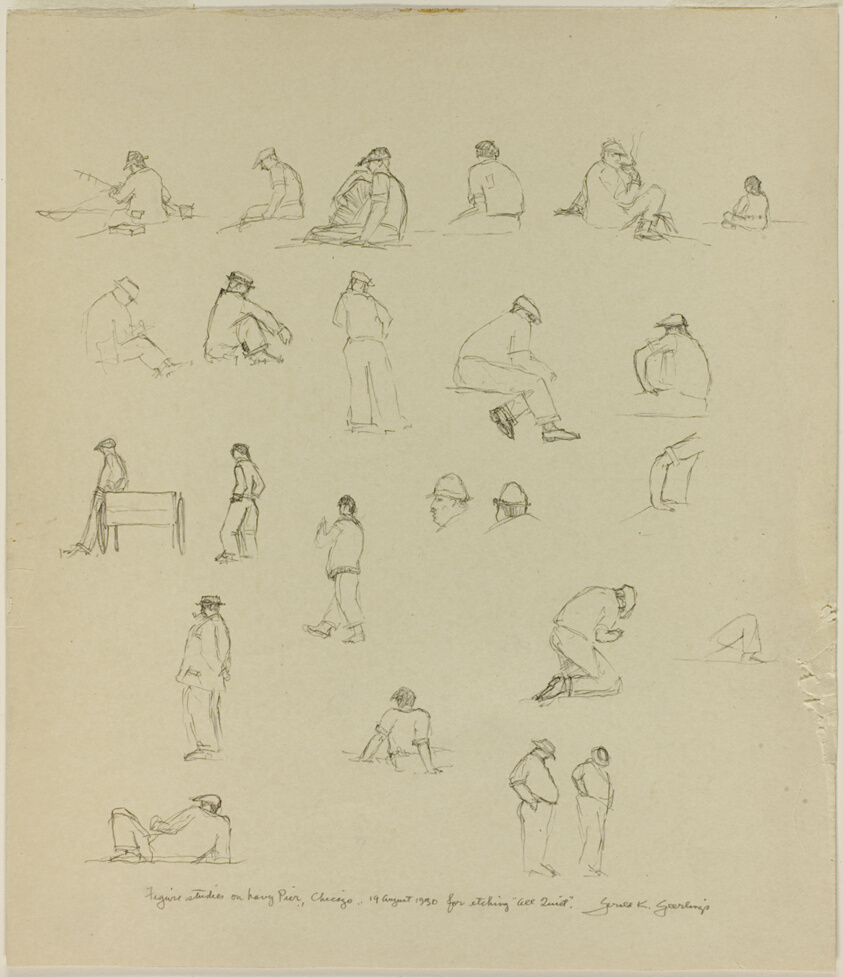 Figure studies on Navy Pier, Chicago, 19 August 1930 for etching "All Quiet". Gerald K. Geerlings